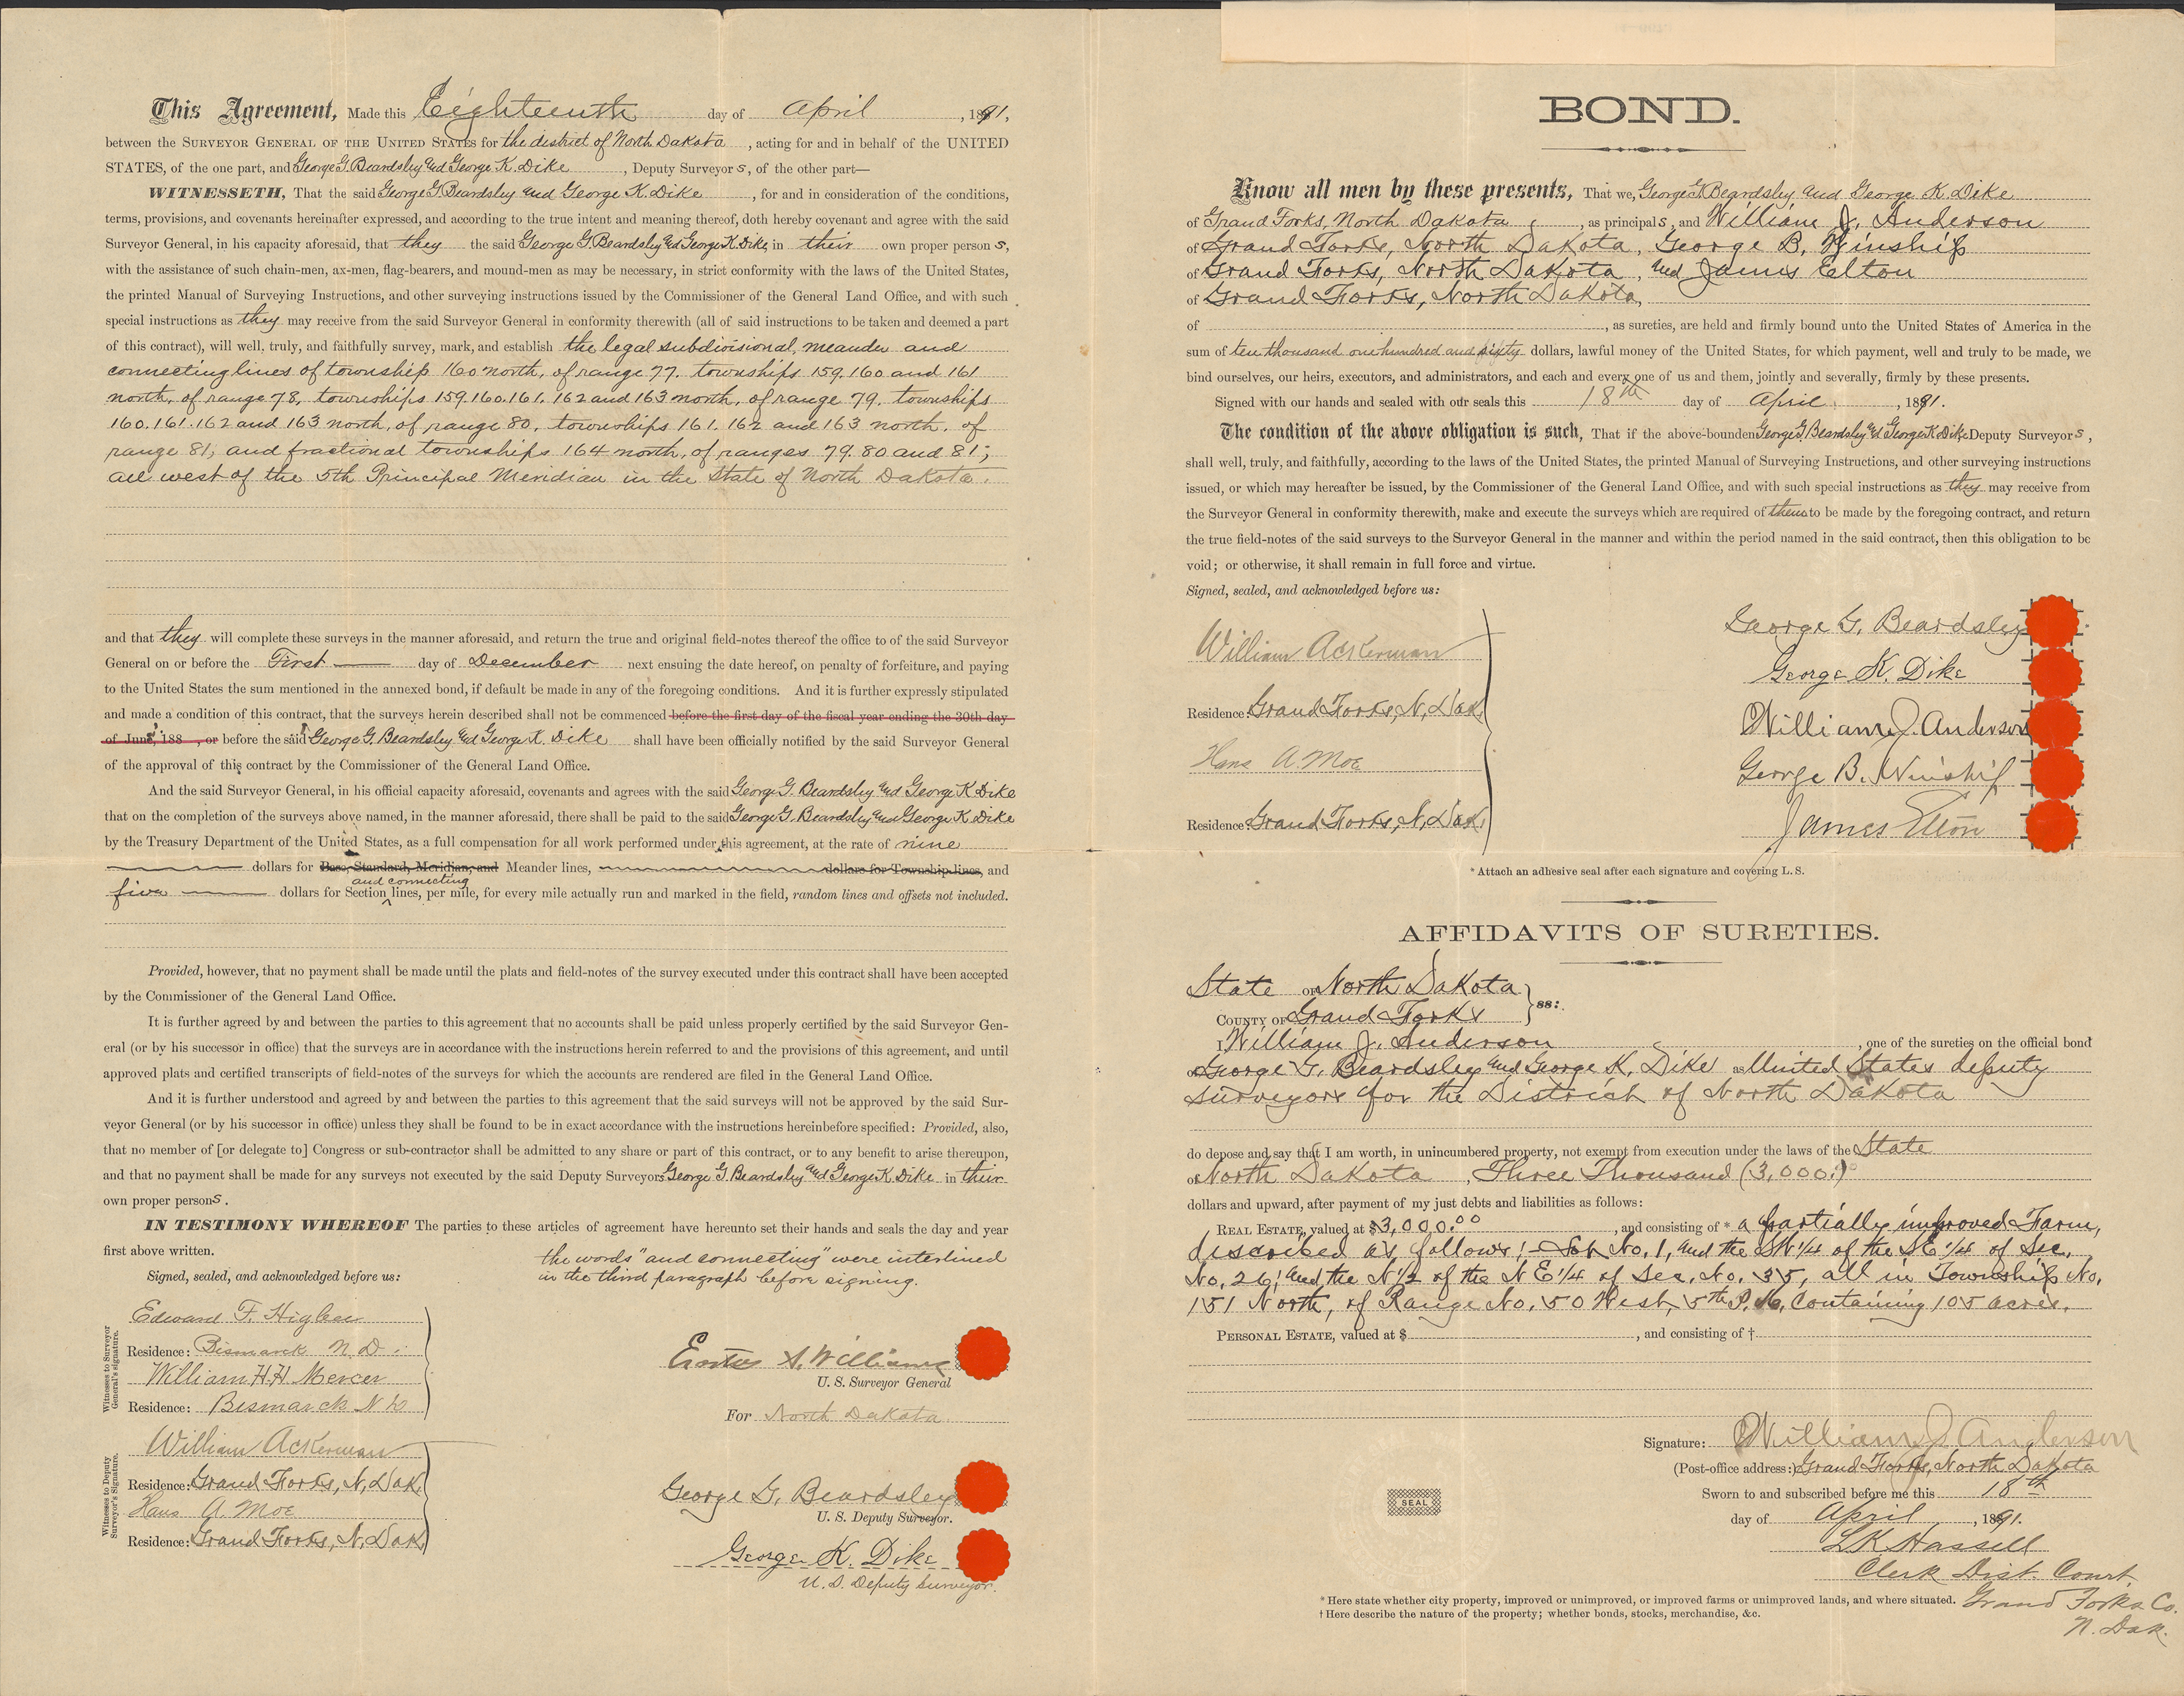 This Agreement, Made this Eighteenth day of April, 1891,
between the SURVEYOR GENERAL OF THE UNITED STATES for the district of North Dakota, acting for and in behalf of the UNITED
STATES, of the one part, and George G. Beardsley and George K. Dike, Deputy Surveyors, of the other part—
WITNESSETH, That the said George G. Beardsley and George K. Dike, for and in consideration of the conditions,
terms, provisions, and covenants hereinafter expressed, and according to the true intent and meaning thereof, doth hereby covenant and agree with the said
Surveyor General, in his capacity aforesaid, that they the said George G. Beardsley and George K. Dike, in their own proper persons,
with the assistance of such chain-men, ax-men, flag-bearers, and mound-men as may be necessary, in strict conformity with the laws of the United States,
the printed Manual of Surveying Instructions, and other surveying instructions issued by the Commissioner of the General Land Office, and with such
special instructions as they may receive from the said Surveyor General in conformity therewith (all of said instructions to be taken and deemed a part
of this contract), will well, truly, and faithfully survey, mark, and establish the legal subdivisional, meander and
connecting lines of township 160 north, of range 77. townships 159. 160 and 161
north, of range 78, townships 159. 160. 161. 162 and 163 north, of range 79. townships
160. 161. 162 and 163 north, of range 80, townships 161. 162 and 163 north. of
range 81, and fractional townships 164 north, of ranges 79. 80 and 81;
all west of the 5th Principal Meridian in the State of North Dakota.
and that they will complete these surveys in the manner aforesaid, and return the true and original field-notes thereof the office to of the said Surveyor
General on or before the First day of December next ensuing the date hereof, on penalty of forfeiture, and paying
to the United States the sum mentioned in the annexed bond, if default be made in any of the foregoing conditions. And it is further expressly stipulated
and made a condition of this contract, that the surveys herein described shall not be commenced before the first day of the fiscal year ending the 30th day
of June, 188 , or before the said George G. Beardsley and George K. Dike shall have been officially notified by the said Surveyor General
of the approval of this contract by the Commissioner of the General Land Office.
And the said Surveyor General, in his official capacity aforesaid, covenants and agrees with the said George G. Beardsley and George K. Dike
that on the completion of the surveys above named, in the manner aforesaid, there shall be paid to the said George G. Beardsley and George K. Dike
by the Treasury Department of the United States, as a full compensation for all work performed under this agreement, at the rate of nine
dollars for Base, Standard, Meridian, and Meander lines, dollars for Township lines, and
and connecting
five dollars for Section lines, per mile, for every mile actually run and marked in the field, random lines and offsets not included.
Provided, however, that no payment shall be made until the plats and field-notes of the survey executed under this contract shall have been accepted
by the Commissioner of the General Land Office.
It is further agreed by and between the parties to this agreement that no accounts shall be paid unless properly certified by the said Surveyor Gen-
eral (or by his successor in office) that the surveys are in accordance with the instructions herein referred to and the provisions of this agreement, and until
approved plats and certified transcripts of field-notes of the surveys for which the accounts are rendered are filed in the General Land Office.
And it is further understood and agreed by and between the parties to this agreement that the said surveys will not be approved by the said Sur-
veyor General (or by his successor in office) unless they shall be found to be in exact accordance with the instructions hereinbefore specified: Provided, also,
that no member of [or delegate to] Congress or sub-contractor shall be admitted to any share or part of this contract, or to any benefit to arise thereupon,
and that no payment shall be made for any surveys not executed by the said Deputy Surveyors George G. Beardsley and George K. Dike in their
own proper persons.
IN TESTIMONY WHEREOF The parties to these articles of agreement have hereunto set their hands and seals the day and year
first above written.
the words "and connecting" were interlined
in the third paragraph before signing.
Signed, sealed, and acknowledged before us:
Witnesses to Surveyor
General's signature.
Edward F. Higbee
Residence: Bismarck N. D.
William H.H. Mercer
Residence: Bismarck N D
U. S. Surveyor General
For North Dakota.
Witnesses to Deputy
Surveyor's Signature.
William Ackerman
Residence: Grand Forks, N. Dak.
Hans A. Moe
Residence: Grand Forks, N. Dak.
George G. Beardsley
U. S. Deputy Surveyor.
George K. Dike
U. S. Deputy Surveyor.
BOND.
Know all men by these presents, That we, George G. Beardsley and George K. Dike
of Grand Forks, North Dakota, as principals, and William J. Anderson
of Grand Forks, North Dakota, George B. Winship
of Grand Forks, North Dakota, and James Elton
of Grand Forks, North Dakota,
of , as sureties, are held and firmly bound unto the United States of America in the
sum of ten thousand one hundred and sixty dollars, lawful money of the United States, for which payment, well and truly to be made, we
bind ourselves, our heirs, executors, and administrators, and each and every one of us and them, jointly and severally, firmly by these presents.
Signed with our hands and sealed with our seals this 18th day of April, 1891.
The condition of the above obligation is such, That if the above-bounden George G. Beardsley and George K. Dike Deputy Surveyors,
shall well, truly, and faithfully, according to the laws of the United States, the printed Manual of Surveying Instructions, and other surveying instructions
issued, or which may hereafter be issued, by the Commissioner of the General Land Office, and with such special instructions as they may receive from
the Surveyor General in conformity therewith, make and execute the surveys which are required of them to be made by the foregoing contract, and return
the true field-notes of the said surveys to the Surveyor General in the manner and within the period named in the said contract, then this obligation to be
void; or otherwise, it shall remain in full force and virtue.
Signed, sealed, and acknowledged before us:
William Ackerman
Residence: Grand Forks, N. Dak.
Hans A. Moe
Residence: Grand Forks, N. Dak.
George G. Beardsley
George K. Dike
William J. Anderson
George B. Winship
James Elton
* Attach an adhesive seal after each signature and covering L. S.
AFFIDAVITS OF SURETIES.
State OF North Dakota
ss:
COUNTY OF Grand Forks
I, William J. Anderson, one of the sureties on the official bond
of George G. Beardsley and George K. Dike as United States deputy
surveyors for the District of North Dakota
do depose and say that I am worth, in unincumbered property, not exempt from execution under the laws of the State
of North Dakota, Three Thousand (3,000.)
dollars and upward, after payment of my just debts and liabilities as follows:
REAL ESTATE, valued at $3,000.00, and consisting of * a partially improved Farm,
described as follows:— Lot No. 1, and the SW 1/4 of the SE 1/4 of Sec.
No. 26, and the N 1/2 of the N E 1/4 of Sec. No. 35, all in Township No.
151 North, of Range No. 50 West, 5th P. M. Containing 105 acres.
PERSONAL ESTATE, valued at $ , and consisting of †
Signature: William J. Anderson
(Post-office address:) Grand Forks, North Dakota
Sworn to and subscribed before me this 18th
day of April, 1891.
SEAL
L K Hassell
Clerk Dist. Court
Grand Forks Co.
N. Dak.
* Here state whether city property, improved or unimproved, or improved farms or unimproved lands, and where situated.
† Here describe the nature of the property; whether bonds, stocks, merchandise, &c.